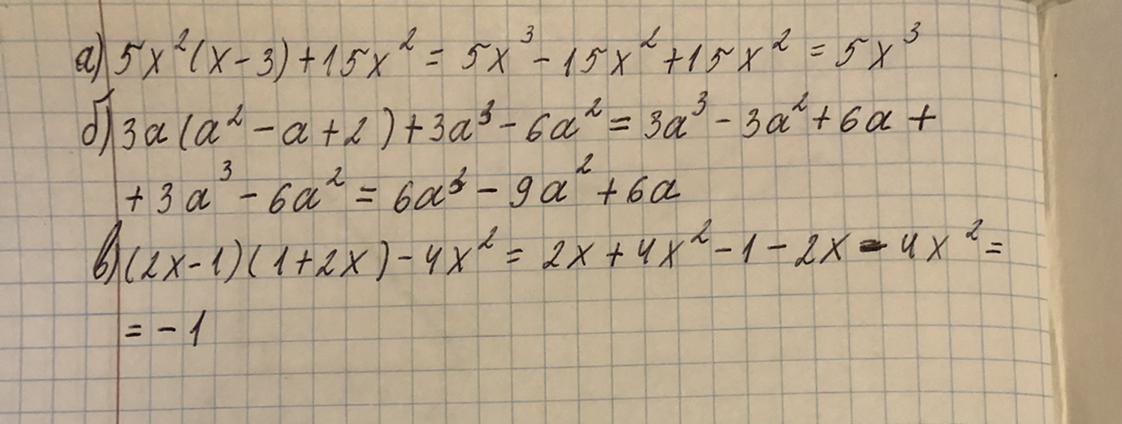 а) 5x²(x-3)+15x² = 5x³-15x²+15x² = 5x³
б) 3a(a²-a+2)+3a³-6a² = 3a³-3a²+6a+
+3a³-6a² = 6a³-9a²+6a
в) (2x-1)(1+2x)-4x² = 2x+4x²-1-2x-4x² =
= -1